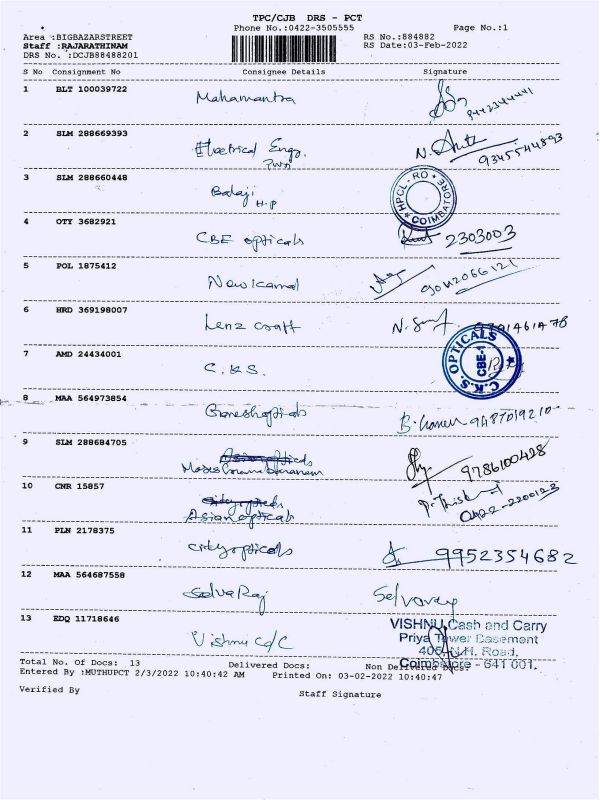 TPC/CJB DRS - PCT
Phone No.:0422-3505555 Page No.:1
Area :BIGBAZARSTREET RS No.:884882
Staff :RAJARATHINAM RS Date:03-Feb-2022
DRS No. :DCJB88488201
S No Consignment No Consignee Details Signature
1 BLT 100039722 Mahamantra 9442344441
2 SLM 288669393 Electrical Engg. N. 9345544893
3 SLM 288660448 Balaji H.P HPCL-RO COIMBATORE
4 OTY 3682921 CBE opticals 2303003
5 POL 1875412 9042066121
6 HRD 369198007 Lenz craft N. 9791461478
7 AMD 24434001 C.K.S. C.K.S. OPTICALS CBE-1
8 MAA 564973854 Ganeshopticals B. 9487019210
9 SLM 288684705 9786100428
10 CNR 15857 Asianopticals 0422-2200123
11 PLN 2178375 cityopticals 9952354682
12 MAA 564687558 SelvaRaj Selvaraj
13 EDQ 11718646 Vishnu C/C
VISHNU Cash and Carry
Priya Tower Basement
405, N.H. Road,
Coimbatore - 641 001.
Total No. Of Docs: 13 Delivered Docs: Non Delivered Docs:
Entered By :MUTHUPCT 2/3/2022 10:40:42 AM Printed On: 03-02-2022 10:40:47
Verified By Staff Signature